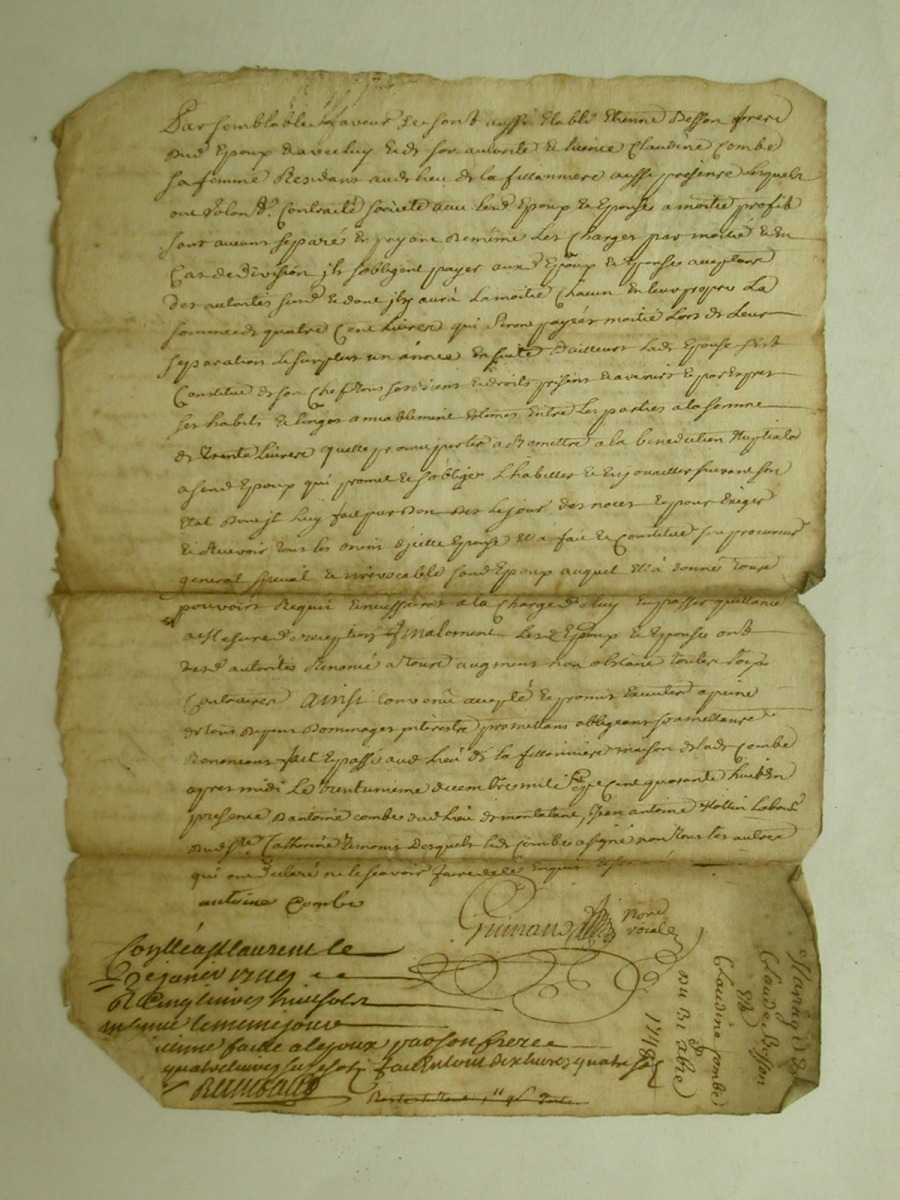 Par semblable faveur se sont aussi établi Etienne Besson frere
dud Epoux & avec luy & de son autorité & licence Claudine Combe
sa femme Residans aud lieu de la fillonniere aussi presente lesquels
ont volon.t Contracté societé avec lesd Epoux & Epouse a moitié profit
sans aucuns separé En payant de même les Charges par moitié & en
Cas de division ils s'obligent payer auxd Epoux & Epouse acceptans
des autorités susd & dont il y aura la moitié Chacun En leur propre La
somme de quatre Cent Livres qui seront payées moitié Lors de leur
separation Le surplus un année En suite D'ailleurs Lade Epouse s'est
Constitué de son Chef tous ses biens & droits presens & avenirs & par Exprès
ses habits & linges amiablement Estimés Entre les parties a la somme
de Trente Livres quelle promis porter & Remettre a la benediction Nuptiale
a sond Epoux qui promet & s'oblige L'habiller & En jouailler suivant son
Etat Dont il luy fait par Don Des le jour des noces & pour Exiger
& Recevoir tous les biens d'jcelle Epouse Ell'a fait & Constitué son procureur
general special & irrevocable sond Epoux auquel Ell'à donné toute
pouvoirs Requis & necessaires a la Charge d'eluy En passer quittance
a Mesure de reception finalement Lesd Epoux & Epouse ont
desd autorités Renoncé a toute augment non obstant toutes Loix
Contraires Ainsi convenu accepté & promis Executer a peine
de tous depens Dommages jnterests promettans obligeans soumettans
Renoncans fait & passé aud Lieu de la fillonniere maison de lad Combe
apres midi Le trentunieme decembre mil sept Cent quarante huit En
presence d'antoine combe dud Lieu de montalane, Jean antoine Hollin Labour
dud Ste Catherine temoins Desquels led combe a signé non tous les autres
qui ont Declaré ne le scavoir faire de ce Enquis
antoine Combe
Guinand Nore
roial
Conllé a St laurent le
janvier 1749
R Cinq livres huit sols
insinué le meme jour
faitte a lepoux par son frere
quatre livres sols fait En tout dix livres quatre sols
Rumbaud
Mariage de
Claude Besson
Et
Claudine Combe
Du 31 Xbre
1748